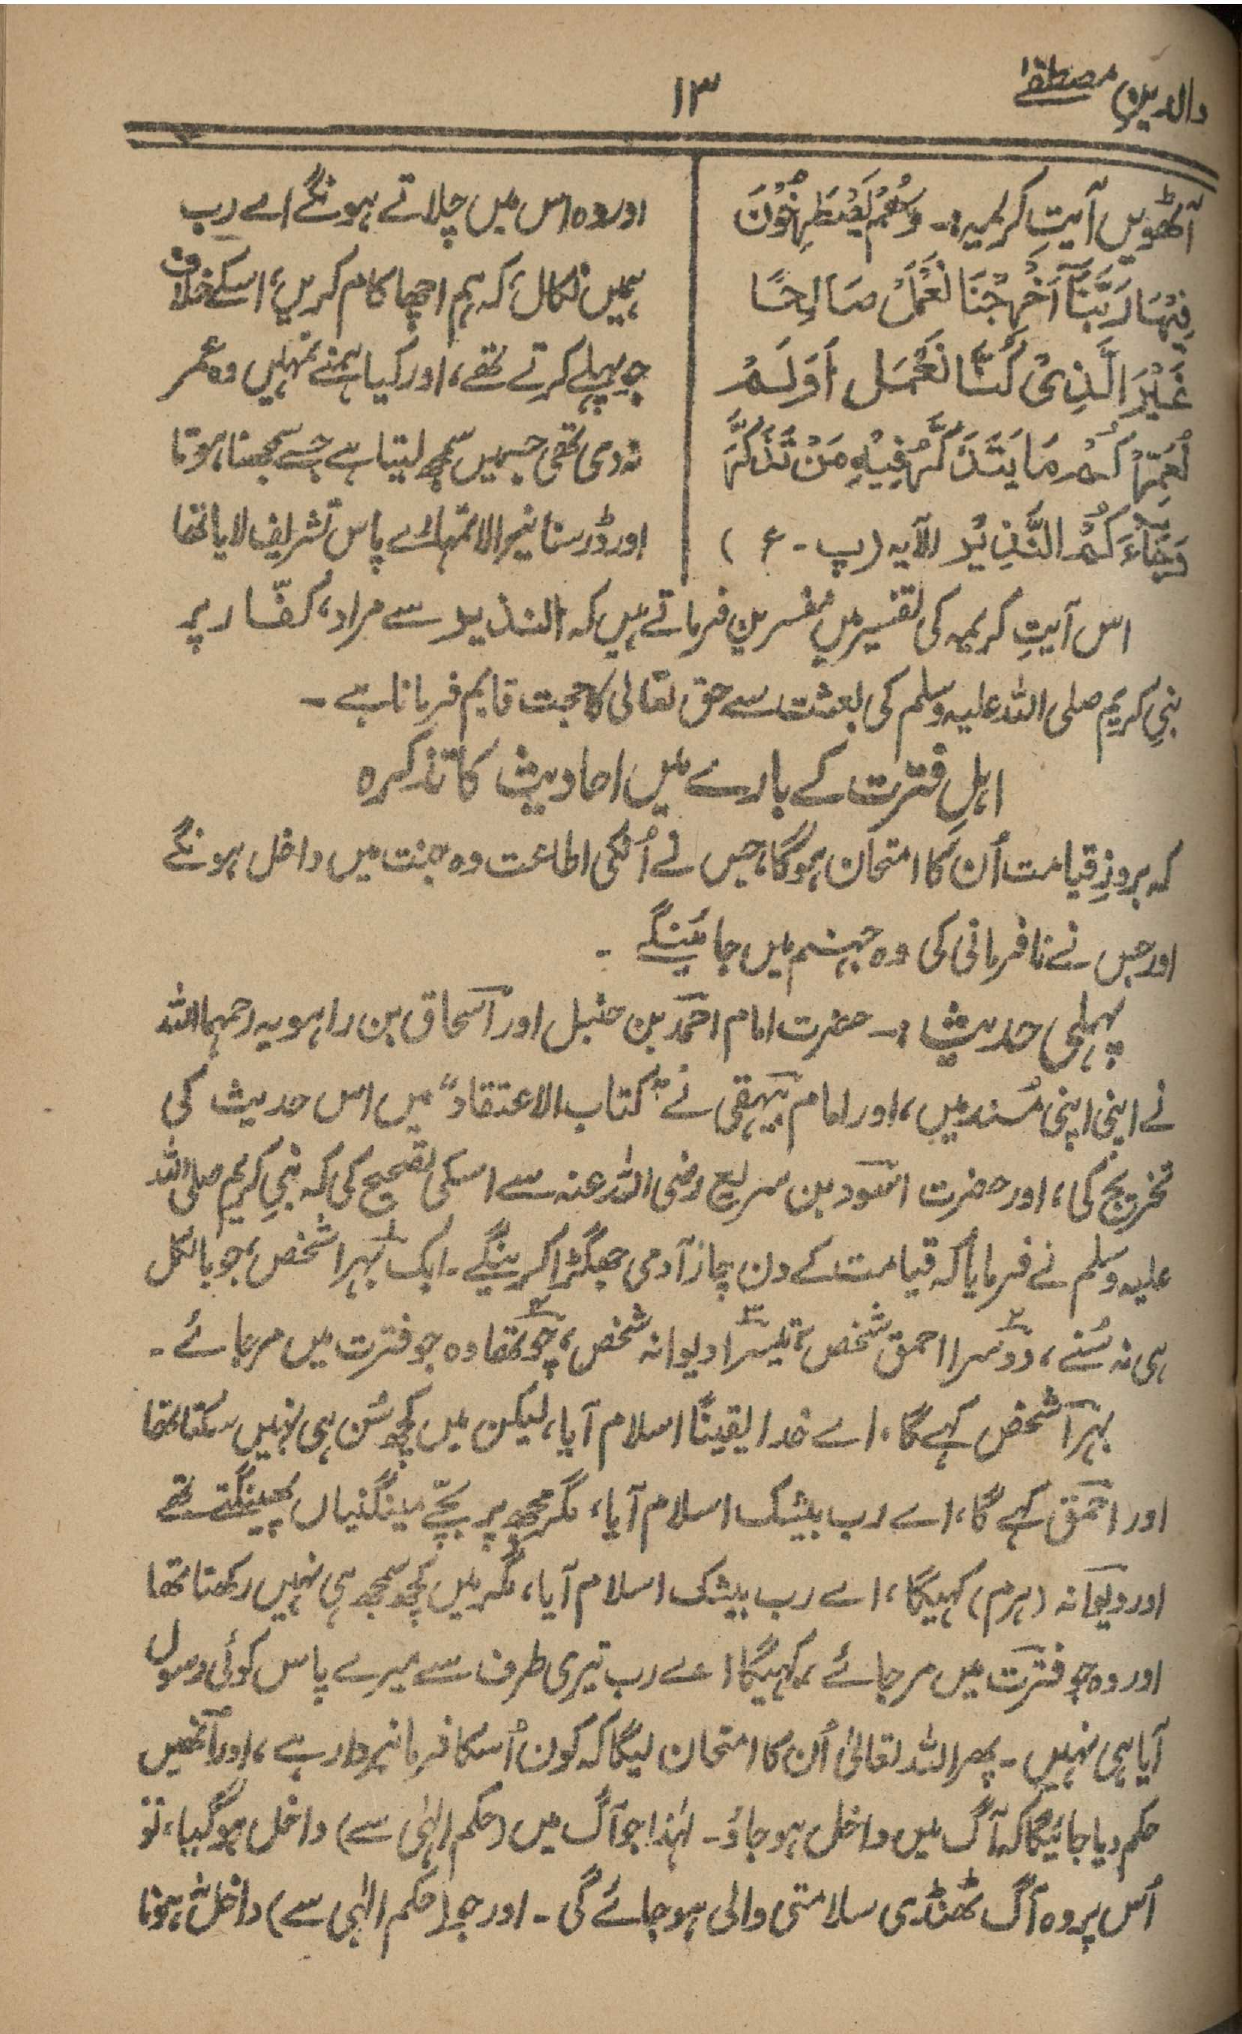 والدین مصطفےٰ
۱۳
آٹھویں آیتِ کریمہ :۔ وَهُمْ يَصْطَرِخُوْنَ
فِيْهَا رَبَّنَآ اَخْرِجْنَا نَعْمَلْ صَالِحًا
غَيْرَ الَّذِىْ كُنَّا نَعْمَل اَوَلَمْ
نُعَمِّرْكُمْ مَا يَتَذَكَّرُ فِيْهِ مَنْ تَذَكَّرَ
وَجَآءَكُمُ النَّذِيْرُ الآیہ (پ ۔ ع )
اور وہ اس میں چلاتے ہونگے اے رب
ہمیں نکال، کہ ہم اچھا کام کریں، اسکے خلاف
جو پہلے کرتے تھے، اور کیا ہمنے تمہیں وہ عمر
نہ دی تھی جسمیں سمجھ لیتا ہے جسے سمجھنا ہوتا
اور ڈر سنانیوالا تمہارے پاس تشریف لایا تھا
اس آیتِ کریمہ کی تفسیر میں مفسرین فرماتے ہیں کہ النذیر سے مراد، کفّار پر
نبیِ کریم صلی اللہ علیہ وسلم کی بعثت سے حق تعالیٰ کا حجت قایم فرمانا ہے ۔
اہلِ فترت کے بارے میں احادیث کا تذکرہ
کہ بروزِ قیامت اُن کا امتحان ہوگا، جس نے اُنکی اطاعت وہ جنت میں داخل ہونگے
اور جس نے نافرمانی کی وہ جہنم میں جائینگے ۔
پہلی حدیث :۔ حضرت امام احمد بن حنبل اور اسحاق بن راہویہ رحمہما اللہ
نے اپنی اپنی مُسند میں، اور امام بیہقی نے "کتاب الاعتقاد" میں اس حدیث کی
تخریج کی، اور حضرت اسود بن سریع رضی اللہ عنہ سے اسکی تصحیح کی کہ نبیِ کریم صلی اللہ
علیہ وسلم نے فرمایا کہ قیامت کے دن چار آدمی جھگڑا کرینگے ۔ ایک بہرا شخص، جو بالکل
ہی نہ سُنے، دوسرا احمق شخص، تیسرا دیوانہ شخص، چوتھا وہ جو فترت میں مر جائے ۔
بہرا شخص کہے گا، اے خدا یقینًا اسلام آیا، لیکن میں کچھ سُن ہی نہیں سکتا تھا
اور احمق کہے گا، اے رب بیشک اسلام آیا، مگر مجھ پر بچّے مینگنیاں پھینکتے تھے
اور دیوانہ (ہرم) کہیگا، اے رب بیشک اسلام آیا، مگر میں کچھ سمجھ ہی نہیں رکھتا تھا
اور وہ جو فترت میں مر جائے، کہیگا اے رب تیری طرف سے میرے پاس کوئی رسول
آیا ہی نہیں ۔ پھر اللہ تعالیٰ اُن کا امتحان لیگا کہ کون اُسکا فرمانبردار ہے، اور اُنھیں
حکم دیا جائیگا کہ آگ میں داخل ہو جاؤ ۔ لہٰذا جو آگ میں (حکم الٰہی سے) داخل ہو گیا، تو
اُس پر وہ آگ ٹھنڈی سلامتی والی ہو جائے گی ۔ اور جو (حکم الٰہی سے) داخل نہ ہونا